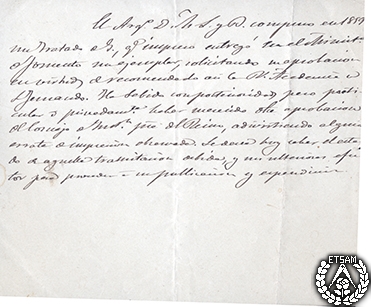 El Arqº D. M. S. y D. compuso en 1859
un tratado de qº impreso entregó en el Ministº
de Fomento un ejemplar, solicitando su aprobacion
en virtud de recomendado a la Rl. Academia de
Sn. Fernando. Ha sabido con posterioridad, pero parti-
cular y privadamte. haber merecido dha aprobacion
del Consejo de del Reino, advirtiendo alguna
errata de impresion observada. Se desea hoy saber el esta-
do de aquella tramitacion debida, y sus ulteriores efec-
tos para proceder a su publicacion y expendicion
ETSAM